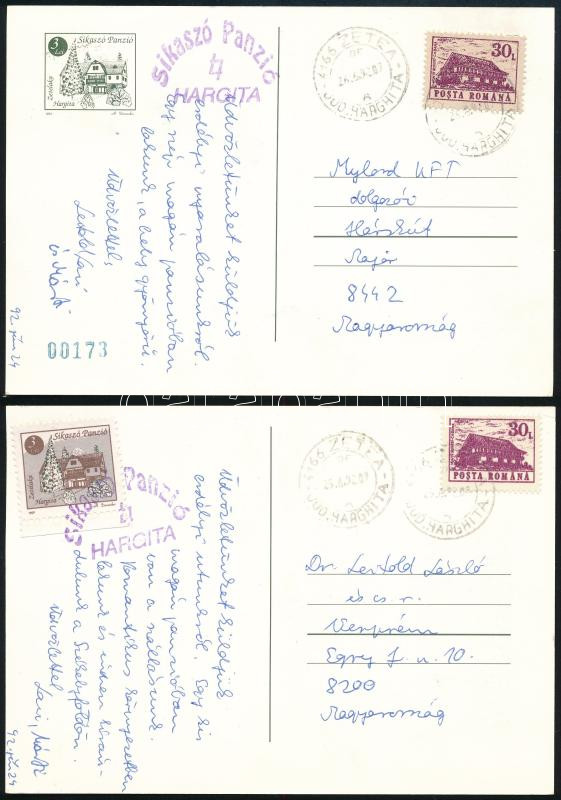 3
Lei
Sikaszó Panzió
Zeteluka
Hargita
Sikaszó Panzió
HARGITA
4166 ZETEA
JUD. HARGHITA
30 L
POSTA ROMANA
JUD. HARGHITA
Üdvözletünket küldjük
erdélyi nyaralásunkról.
Egy szép magán panzióban
lakunk, a hely gyönyörű.
Üdvözlettel,
és Márti
92. jún. 24
00173
Mylord KFT
dolgozói
Hárskút
Major
8442
Magyarország
3
Sikaszó Panzió
Zeteluka
Hargita
Sikaszó Panzió
HARGITA
4166 ZETEA
JUD. HARGHITA
JUD. HARGHITA
30 L
POSTA ROMANA
Üdvözletünket küldjük
erdélyi utunkról. Egy kis
magán panzióban
van a szállásunk.
Romantikus környezetben
lakunk és innen kirán-
dulunk a Székelyföldön.
Üdvözlettel
Laci, Márti
92. jún. 24
Dr. Leitold László
és cs. r.
Veszprém
Egry J. u. 10.
8200
Magyarország